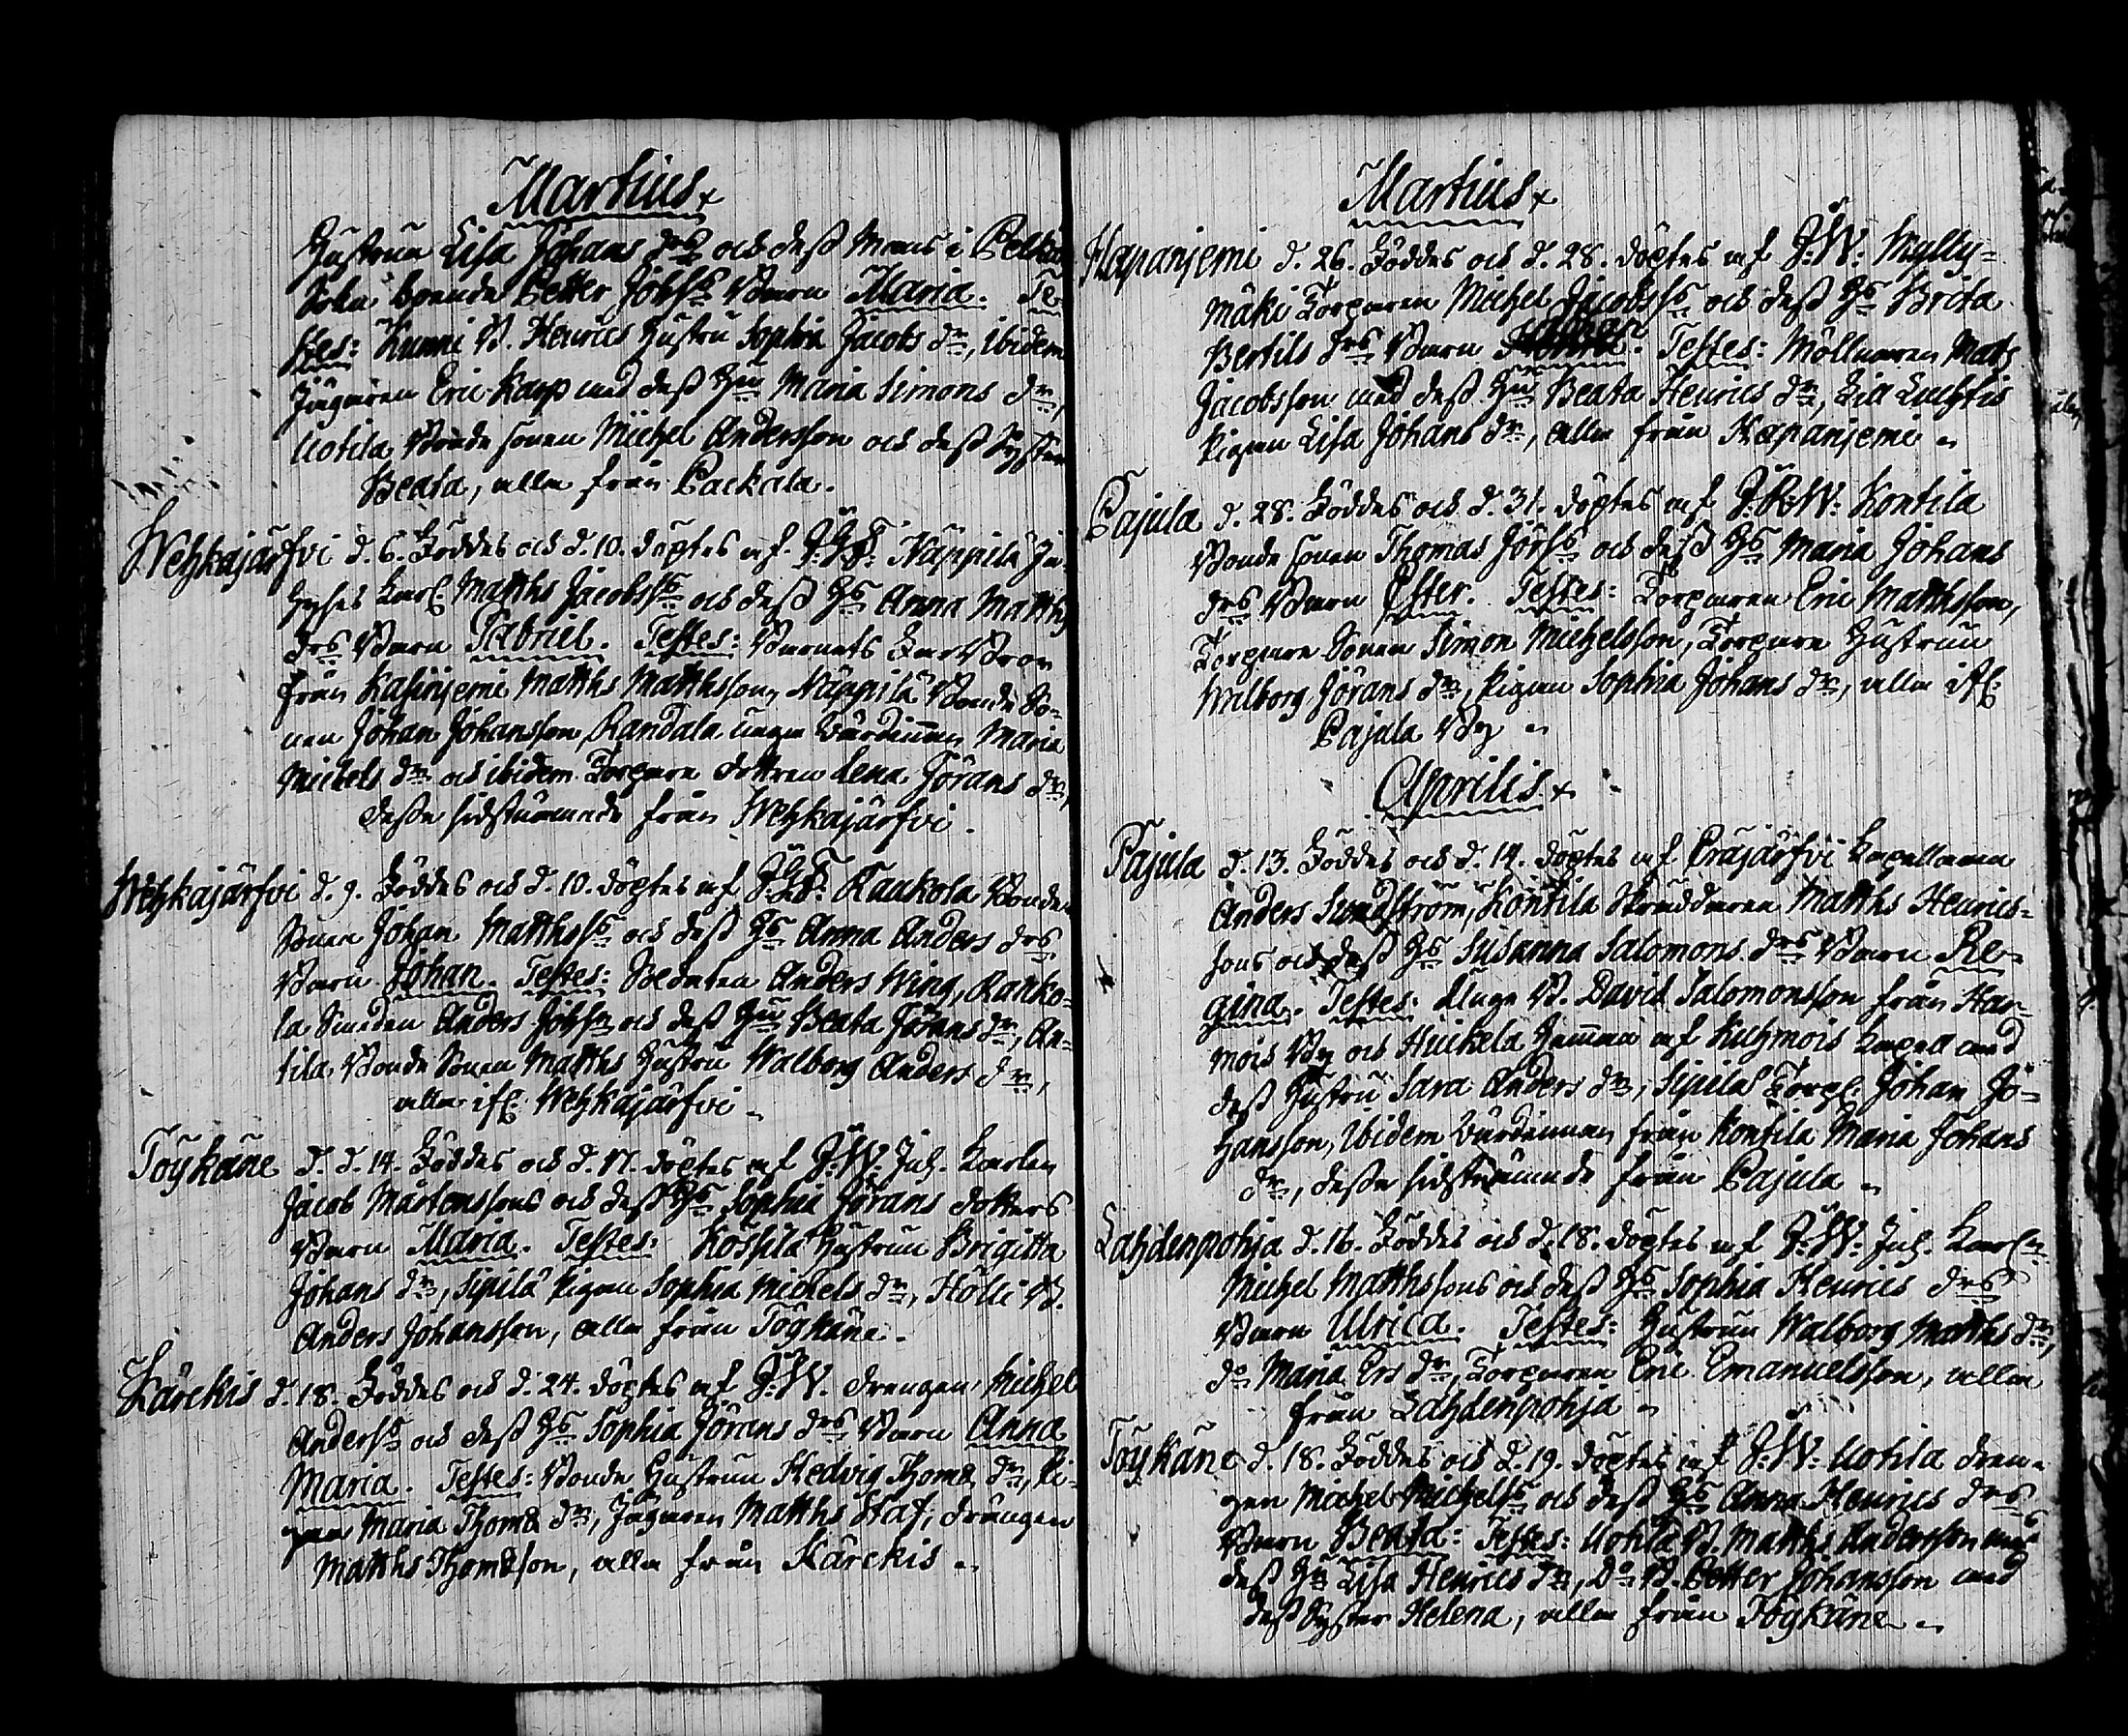 Martius
Hustrun Lisa Johans drs och dess Mans i Pelkä
Sokn boende Petter Johss Barn Maria. Te-
stes: Kunni B. Henrics Hustru Sophia Jacobs dr, ibidem
Jägaren Eric Kasp med dess Hu Maria Simons dr,
Uotila Bonde sonen Michel Andersson och dess Syster
Beata, alla från Packala.
Wehkajärfvi d. 6. Föddes och d. 10. döptes af Näppilä In-
hyses Karl. Matths Jacobss och dess Hs Anna Matths
drs Barn Gabriel. Testes: Barnets Far Bror
från Kasinjemi Matths Matthsson, Näppilä Bonde So-
nen Johan Johansson, Randala unga Värdinnan Maria
Michels dr och ibidem Torpare dottren Lena Görans dr,
desse sidstnämnde från Wehkajärfvi.
Wehkajärfvi d. 9. Föddes och d. 10. döptes af Raukola Bonde
Sonen Johan Matthss och dess Hs Anna Anders drs
Barn Johan. Testes: Soldaten Anders Wing, Rauko-
la Smeden Anders Johss och dess Hu Beata Görans dr, An-
tila Bonde Sonen Matths Hustru Walborg Anders dr,
alla ifr. Wehkajärfvi
Töykäne d. d. 14. Föddes och d. 17. döptes af J: W: Inh. Karlen
Jacob Mårtenssons och dess Hs Sophia Görans dotters
Barn Maria. Testes: Kossila Hustrun Brigitta
Johans dr, Sipilä Pigan Sophia Michels dr, Hölli B.
Anders Johansson, alla från Töykäne.
Kärckis d. 18. Föddes och d. 24. döptes af J: W. drengen Michel
Anderss och dess Hs Sophia Görans drs Barn Anna
Maria. Testes: Bonde Hustrun Hedvig Thom: dr, Pi-
gan Maria Thom: dr, Jägaren Matths Staf, drängen
Matths Thom:son, alla från Kärckis
Martius
Hapanjemi d. 26. Föddes och d. 28. döptes af J: W: Mylly-
mäki Torparen Michel Jacobss och dess Hs Brita
Bertils drs Barn. Testes: Möllnaren Mats
Jacobsson med dess Hu Beata Henrics dr, Lill Luhtis
Pigan Lisa Johans dr, alla från Hapanjemi
Pajula d. 28. Föddes och d. 31. döptes af Kontila
Bonde sonen Thomas Görss och dess Hs Maria Johans
drs Barn Ester. Testes: Torparen Eric Matthsson,
Torpare Sonen Simon Michelsson, Torpare Hustrun
Walborg Görans dr, Pigan Sophia Johans dr, alla ifr:
Pajula By
Aprilis
Pajula d. 13. Föddes och d. 14. döptes af Eräjärfvi Kapellanen
Anders Sundström, Kontila Skräddaren Matths Henrics-
sons och dess Hs Susanna Salomons drs Barn Re-
gina. Testes: Unge B. David Salomonsson från Har-
mois By och Huckela Hemman af Kuhmois Kapell med
dess Hustru Sara Anders dr, Sipilas Torp: Johan Jo-
hansson, Ibidem Värdinnan från Kontila Maria Johans
dr, desse sidstnämnde från Pajula
Lahdenpohja d. 16. Föddes och d. 18. döptes af J: W: Inh. Karln
Michel Matthssons och dess Hs Sophia Henrics drs
Barn Ulrica. Testes: Hustrun Walborg Matths dr,
do Maria Ers dr, Torparen Eric Emanuelsson, alla
från Lahdenpohja
Töykäne d. 18. Föddes och d. 19. döptes af J: W: Uotila dren-
gen Michel Michelss och dess Hs Anna Henrics drs
Barn Beata: Testes: Uotila B. Matths Andersson med
dess Hu Lisa Henrics dr, Do B. Petter Johansson med
dess Syster Helena, alla från Töykäne